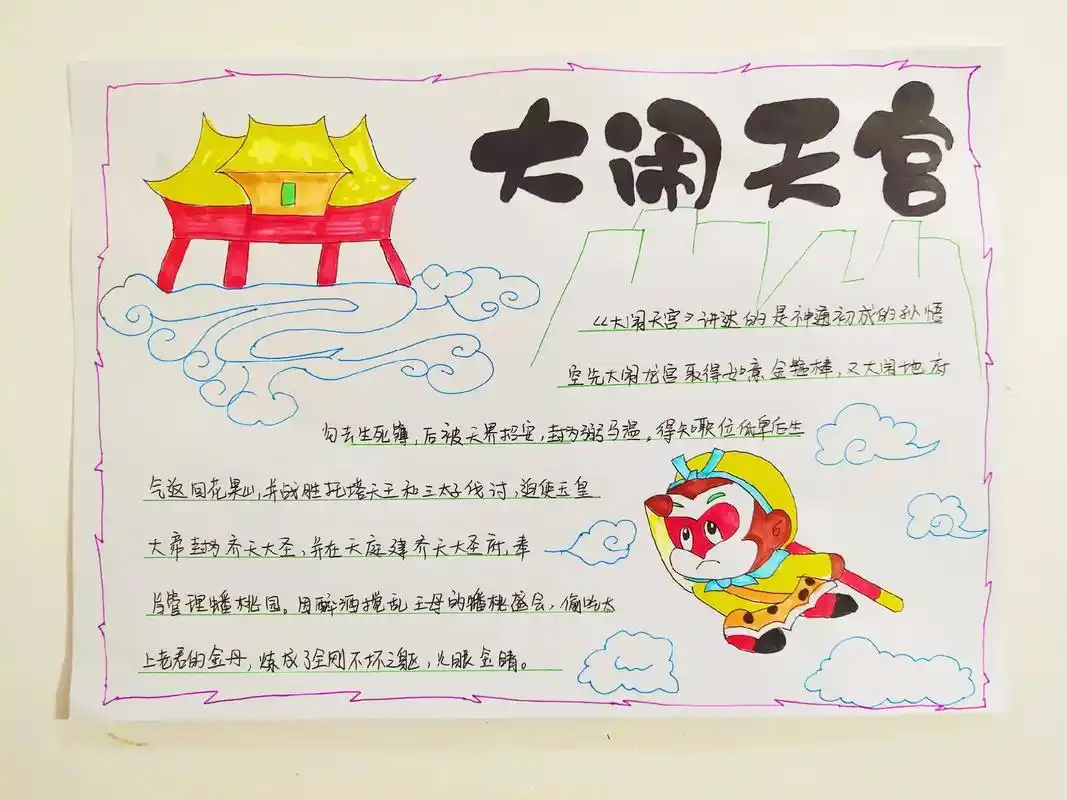 大闹天宫
《大闹天宫》讲述的是神通初成的孙悟
空先大闹龙宫取得如意金箍棒，又大闹地府
勾去生死簿，后被天界招安，封为弼马温。得知职位低卑后生
气返回花果山，并战胜托塔天王和三太子伐讨，迫使玉皇
大帝封为齐天大圣，并在天庭建齐天大圣府，奉
旨管理蟠桃园。因醉酒搅乱王母的蟠桃盛会，偷吃太
上老君的金丹，炼成了金刚不坏之躯，火眼金睛。